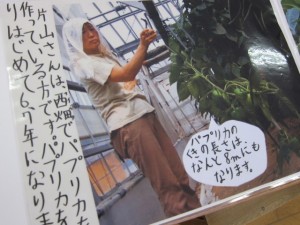 片山さんは、西畑でパプリカを
作っている方です。パプリカを
りはじめて6、7年になりま
パプリカの
くきの長さは、
なんと8mにも
なります。